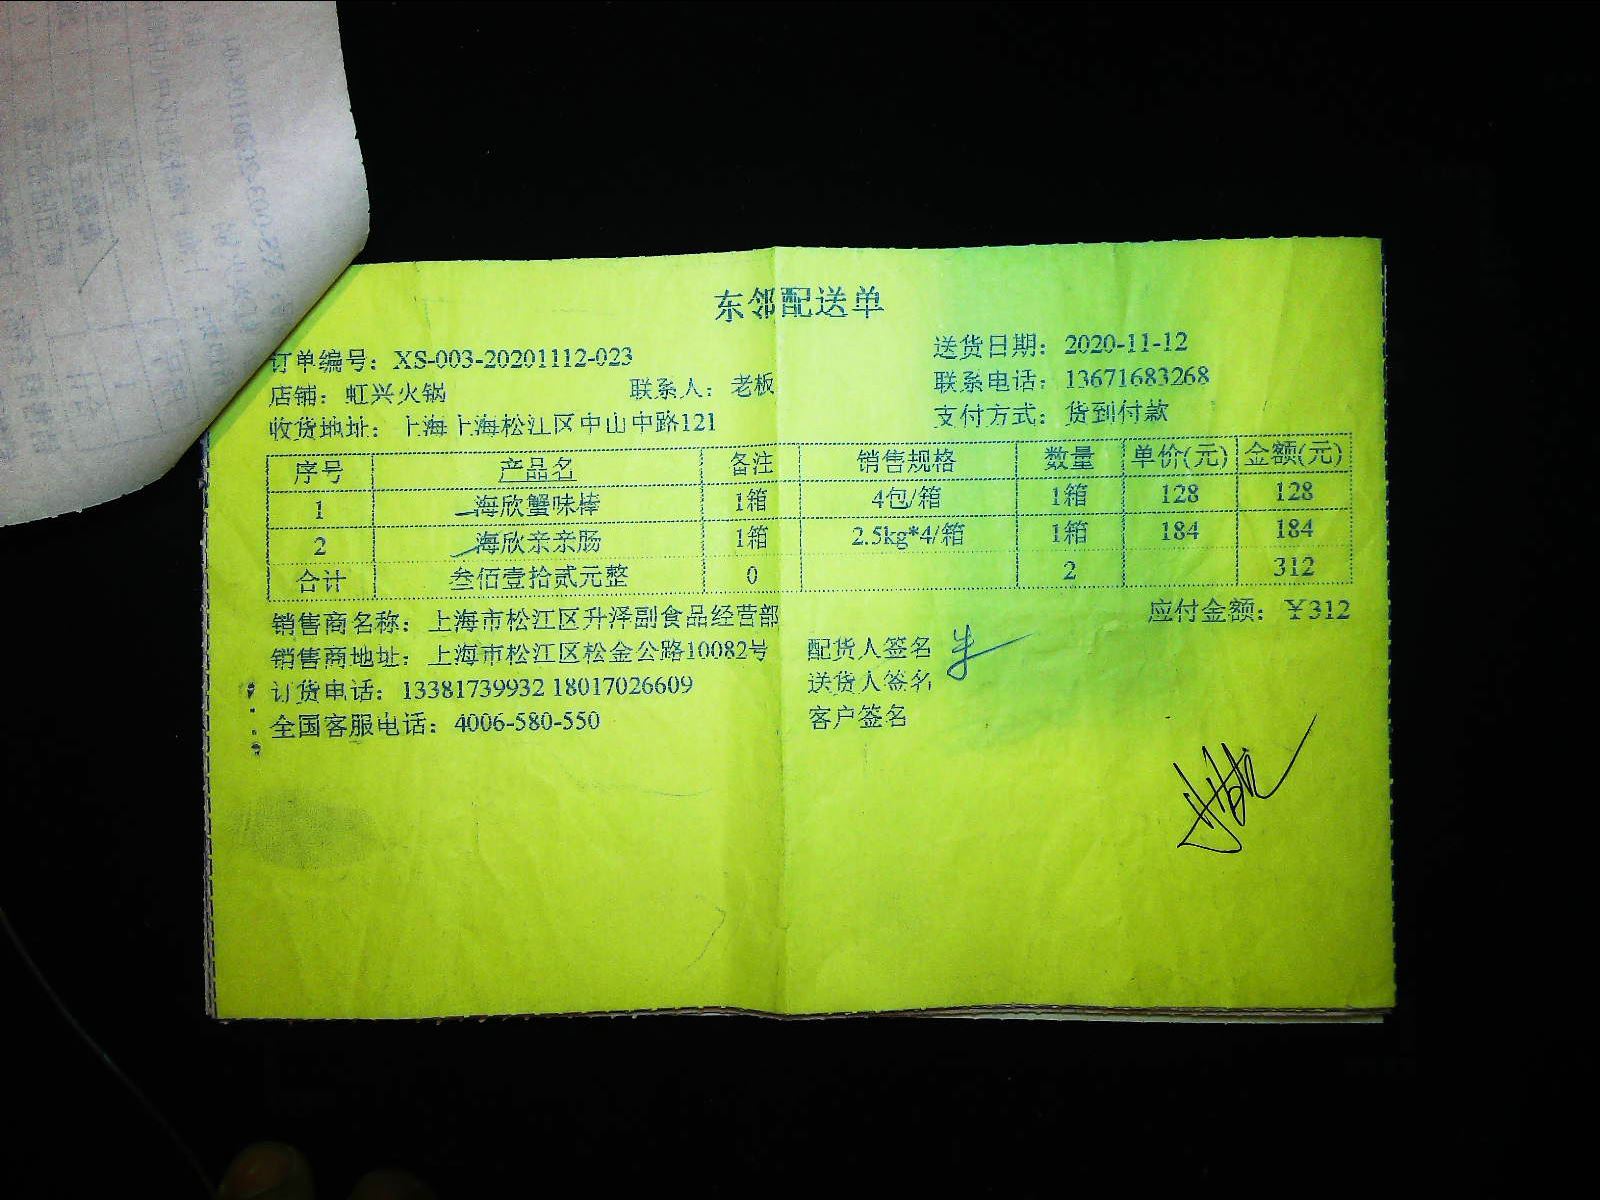 东邻配送单
订单编号：XS-003-20201112-023 送货日期：2020-11-12
店铺：虹兴火锅 联系人：老板 联系电话：13671683268
收货地址：上海上海松江区中山中路121 支付方式：货到付款
序号 产品名 备注 销售规格 数量 单价(元) 金额(元)
1 海欣蟹味棒 1箱 4包/箱 1箱 128 128
2 海欣亲亲肠 1箱 2.5kg*4/箱 1箱 184 184
合计 叁佰壹拾贰元整 0 2 312
销售商名称：上海市松江区升泽副食品经营部 应付金额：￥312
销售商地址：上海市松江区松金公路10082号 配货人签名
订货电话：13381739932 18017026609 送货人签名
全国客服电话：4006-580-550 客户签名